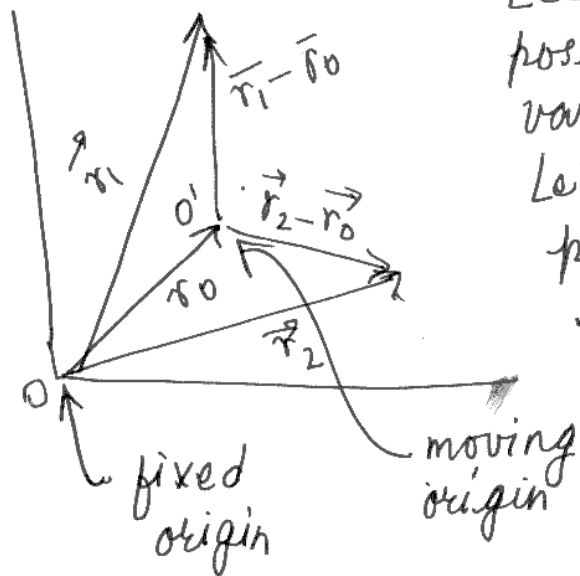 poss
var
Le
p
r̄₁ - r̄₀
r⃗₁
O'
r⃗₂ - r⃗₀
r₀
r⃗₂
O
fixed
origin
moving
origin